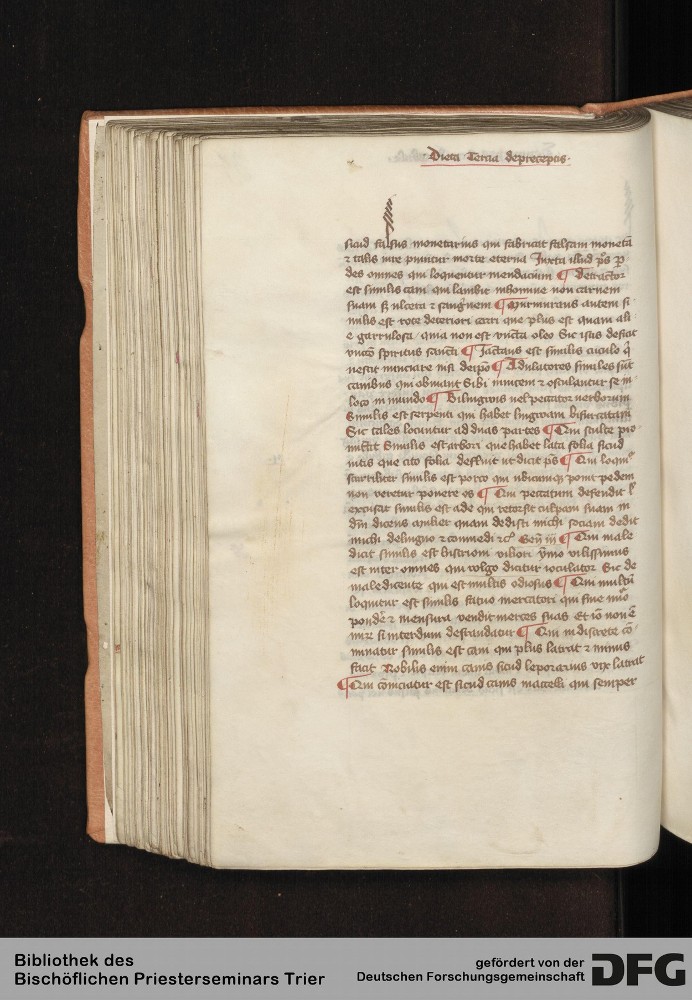 Dieta Tertia de preceptis
sicud falsus monetarius qui fabricat falsam monetā
⁊ talis iure punitur morte eterna Juxta illud ps̄ p̄
des omnes qui loquentur mendacium ¶ Detractor
est similis cani qui lambit in homine non carnem
suam sꝫ ulcera ⁊ sanguinem ¶ Murmurans autem si
milis est rote deteriori carri que plus est quam ali
e garrulosa quia non est vncta oleo Sic istis deficit
vnctō spiritus sancti ¶ Jactans est similis cuculo q̄
nescit nunciare nisi de ip̄o ¶ Adulatores similes sūt
canibus qui obuiant sibi inuicem ⁊ osculantur se in
loco in mundo ¶ Bilingwis vel peccator verborum
Similis est serpenti qui habet lingwam bifurcatam
Sic tales locuntur ad duas partes ¶ Qui stulte pro
mittit Similis est arbori que habet lata folia sicud
vitis que cito folia deffluit ut dicit ps̄ ¶ Qui loquit᷑
scurriliter similis est porco qui ubicumqꝫ ponit pedem
non veretur ponere os ¶ Qui peccatum defendit l̄
excusat similis est ade qui retorsit culpam suam in
dn̄m dicens mulier quam dedisti michi sociam dedit
michi de ligno ⁊ commedi ⁊c̄ Gen̄ iij ¶ Qui male
dicit similis est histrioni viliori ymo vilissimus
est inter omnes qui volgo dicitur ioculator Sic de
maledicente qui est multis odiosus ¶ Qui multū
loquitur est similis fatuo mercatori qui sine nūo
pondere ⁊ mensura vendit merces suas Et iō non ē
mir̄ si interdum defraudatur ¶ Qui indiscrete cō
minatur similis est cani qui plus latrat ⁊ minus
facit Nobilis enim canis sicud leporarius vix latrat
¶ Qui cōuiciatur est sicud canis macelli qui semper
Bibliothek des
Bischöflichen Priesterseminars Trier
gefördert von der
Deutschen Forschungsgemeinschaft
DFG